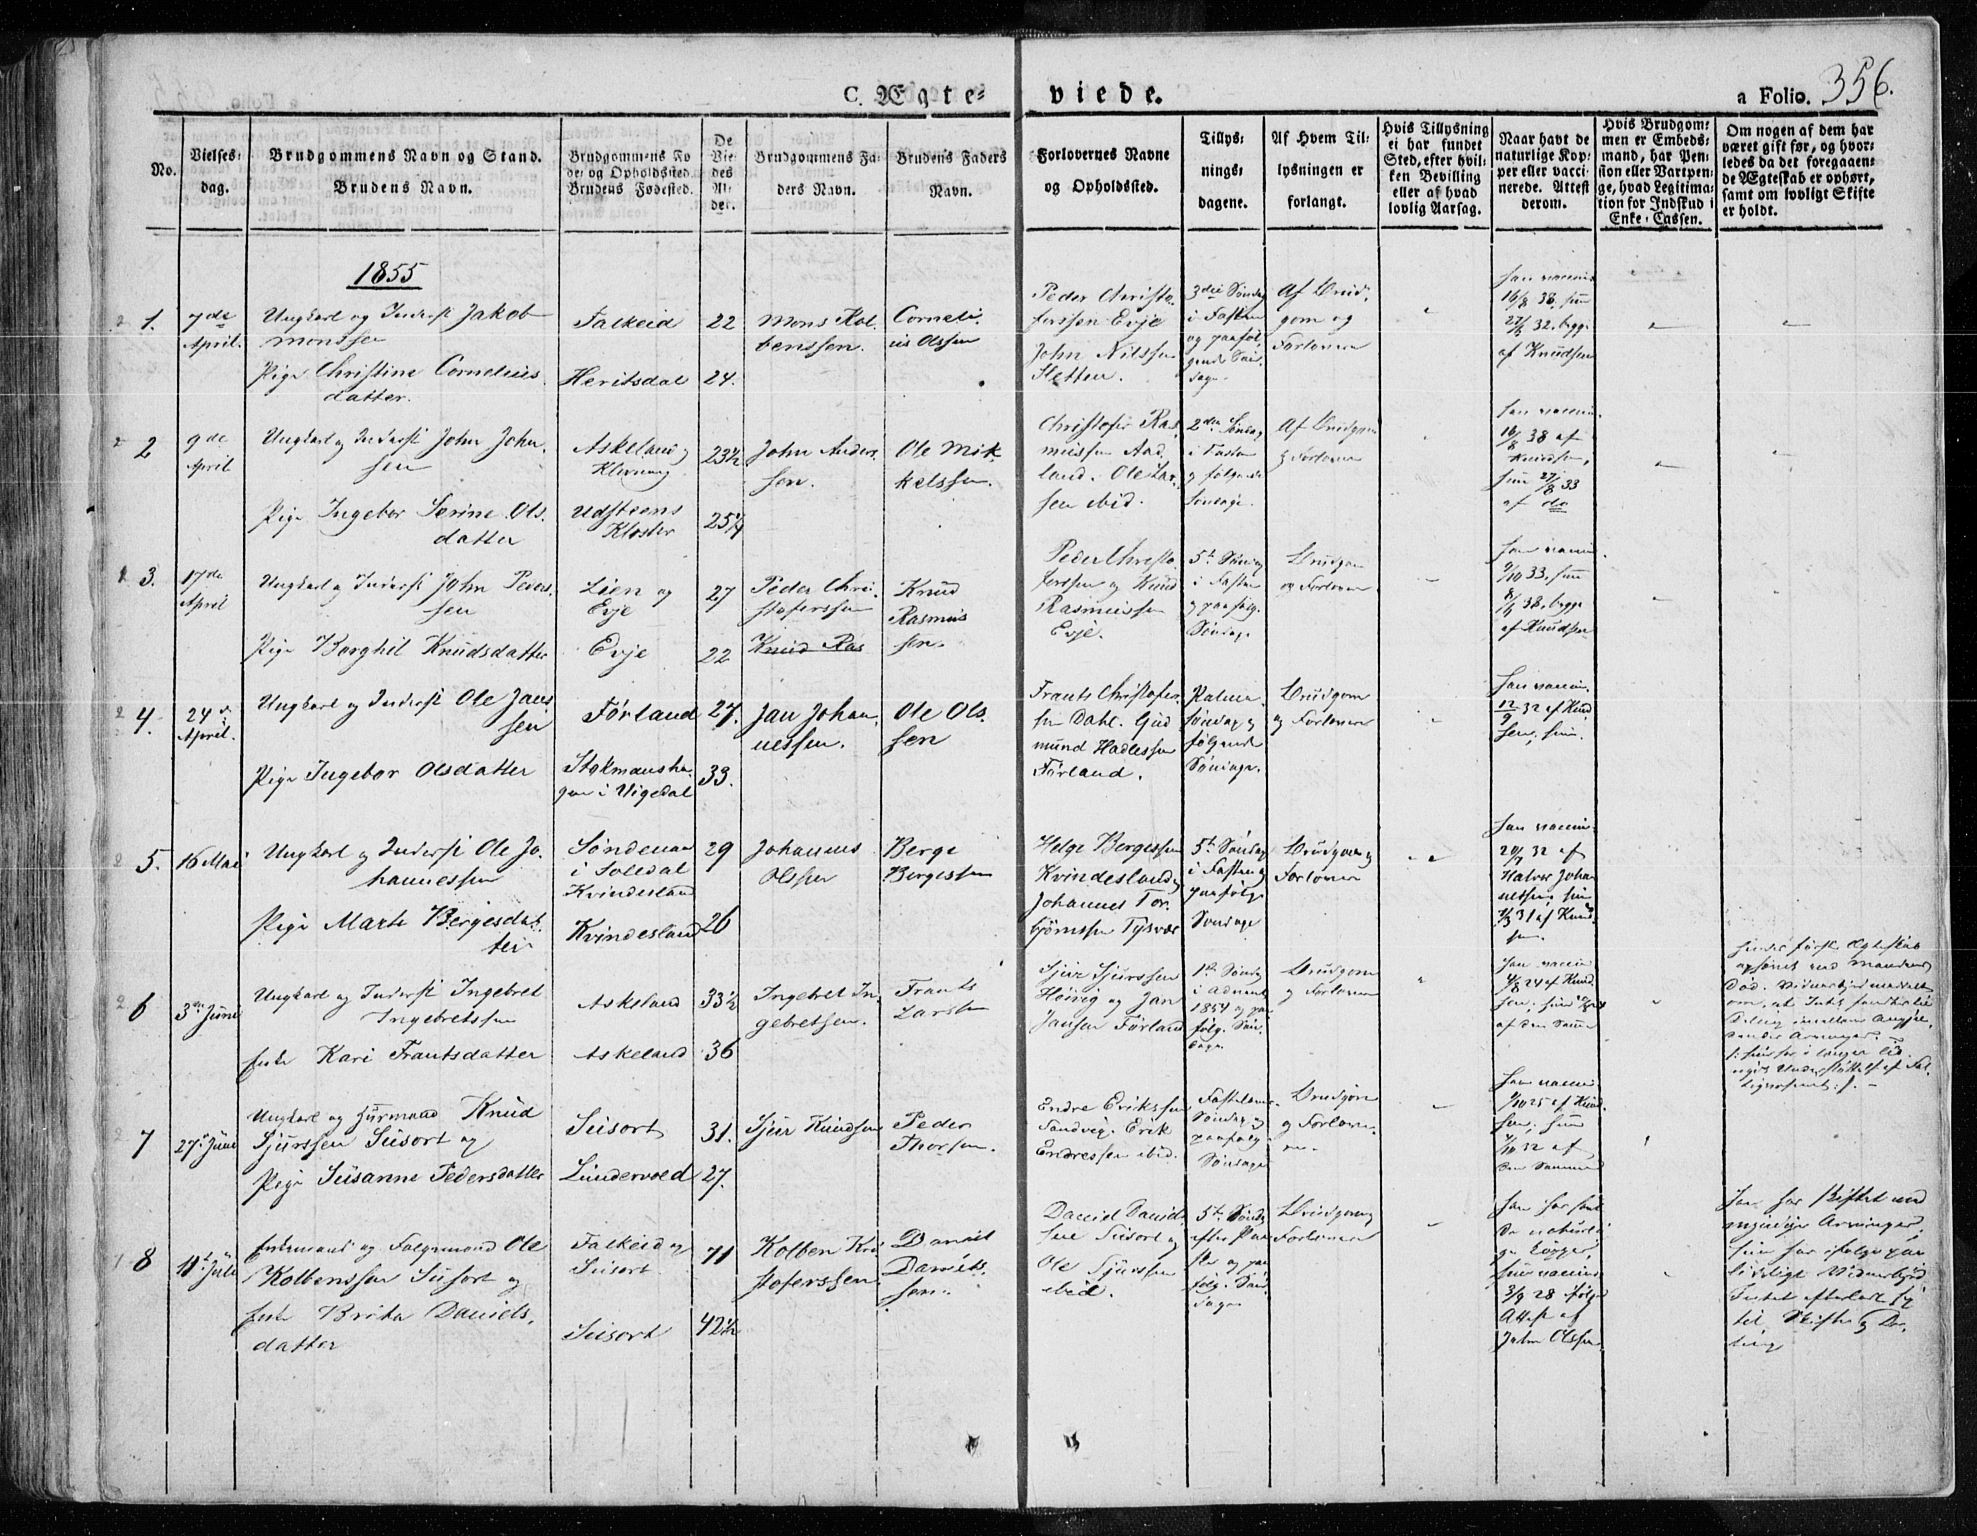 C. Ægte=
viede.
a Folio. 356.
No.
Vielses=
dag.
Brudgommens Navn og Stand.
Brudens Navn.
Brudgommens Fø
de= og Opholdssted.
Brudens Fødested.
De
Vie=
des
Al=
der.
Brudgommens Fa=
ders Navn.
Brudens Faders
Navn.
Forlovernes Navne
og Opholdsted.
Tillys=
nings=
dagene.
Af Hvem Til=
lysningen er
forlangt.
Hvis Tillysning
ei har fundet
Sted, efter hvil=
ken Bevilling
eller af hvad
lovlig Aarsag.
Naar havt de
naturlige Kop=
per eller vacci=
nerede. Attest
derom.
Hvis Brudgom=
men er Embeds=
mand, har Pen=
sion eller Vartpen=
ge, hvad Legitima=
tion for Indskud i
Enke=Cassen.
Om nogen af dem har
været gift før, og hvor=
ledes da det foregaaen=
de Ægteskab er ophørt,
samt om lovligt Skifte
er holdt.
1855
1.
7de
April.
Ungkarl og Inderst Jakob
Monssen
Pige Christine Cornelius
datter.
Falkeid
Heritsdal
22
24.
Mons Kol
benssen.
Corneli
us Olssen
Peder Christo
fersen Evje
John Nilssen
Sletten.
3die Søndag
i Fasten
og paaføl
gende Søn
dage.
Af Brud
gom og
Forlovere
Han vaccin
16/8 38, hun
27/8 32, begge
af Knudsen
2
9de
April
Ungkarl og Inderst John John
sen
Pige Ingebor Serine Ols
datter
Askeland
Klevning
Udsteens
Kloster
23½
25¼
John Anders
sen.
Ole Mik
kelssen.
Christofer Ras
mussen Aad
land. Ole Lar
sen ibid.
2den Søndag
i Fasten
og følgende
Søndage.
Af Brudgom
og Forlovere
Han vaccin.
16/8 38 af
Knudsen,
hun 27/8 33
af do
3.
17de
April
Ungkarl og Inderst John Peders
sen
Pige Borghil Knudsdatter
Lien og
Evje
Evje
27
22
Peder Chri
stoferssen
Knud Ras
Knud
Rasmus
sen.
Peder Christo
ferssen og Knud
Rasmussen
Evje.
5te Søndag
i Fasten
og paafølg.
Søndage
Brudgom
og Forlovere
Han vaccin.
9/10 33, hun
8/9 38, begge
af Knudsen
4.
24de
April.
Ungkarl og Inderst Ole Jans
sen
Pige Ingebor Olsdatter
Førland
Stokmansha
gen i Vigedal
27.
33.
Jan Johan
nessen.
Ole Ols
sen
Frants Christofer
sen Dahl. Gud
mund Hadlessen
Førland.
Palme
søndag og
følgende
Søndage.
Brudgom
og Forlovere
Han vaccin.
12/9 32 af Knud
sen; hun.
5.
16 Mai
Ungkarl og Inderst Ole Jo
hannessen
Pige Marte Bergesdat
ter
Søndenaa
i Soledal
Kvindesland
Kvindesland
29
26
Johannes
Olssen
Berge
Bergessen
Helge Bergessen
Kvindesland
Johannes Tor
bjørnssen Tysvær
5te Søndag
i Fasten og
paafølg.
Søndage
Brudgom og
Forlovere
Han vaccin
20/7 32 af
Halvor Johan
nessen; hun
31 af Knud
sen.
6
3die Juni
Ungkarl og Inderst Ingebret
Ingebretssen
Enke Kari Frantsdatter
Askeland
Askeland
33½
36
Ingebret In
gebretsen.
Frants
Larsen
Sjur Sjurssen
Høivig og Jan
Jansen Førland
1ste Søndag
i Advent
1854 og paa
følg. Søn
dage.
Brudgom
og Forlovere
Han vaccin
24 af Knud
sen; hun
af den Samme
Hendes første Ægteskab
ophævet ved Mandens
Død.
7
27de Juni
Ungkarl og Huusmand Knud
Sjurssen Susort og
Pige Susanne Pedersdatter
Susort
Lundervold
31.
27.
Sjur Knudsen
Peder
Thorsen.
Endre Erikssen
Sandvig. Erik
Endressen ibid.
Fastelavns
Søndag og
paafølg.
Søndage
Brudgom
og Forlove
re.
Han vaccin
9/10 25 af Knud
sen; hun
9/10 32 af
den Samme
8
11te Juli
Enkemand og Folgemand Ole
Kolbenssen Susort og
Enke Brita Daniels
datter
Falkeid og
Susort
Susort
71
42½
Kolben Kri
stoferssen
Daniel
Daniels
sen.
Daniel Daniels
sen Susort og
Ole Sjurssen
ibid.
5te Søndag
efter Paa
ske og paa
følg. Søn
dage
Brudgom og
Forlovere
Han har havt
de naturli
ge Kopper,
hun vaccin
3/9 28 følge
Attest af
John Olssen
Han har skiftet med
myndige Arvinger,
hun har ifølge paa
lideligt Vidnesbyrd
Intet efterladt sig
til Skifte og De
ling